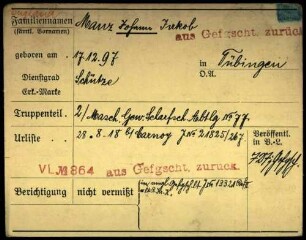 Familiennamen Manz Johann Jakob
(sämtl. Vornamen)
aus Gefgscht. zurück
geboren am 17.12.97 in Tübingen
O.A.
Dienstgrad Schütze
Erk.-Marke
Truppenteil 2/ Masch. Gew. Scharfsch. Abtlg No 77.
Urliste 28.8.18 b/ Carnoy J No 21825/267 Veröffentl.
in V.L.
VLM 864 aus Gefgscht. zurück
Berichtigung nicht vermißt